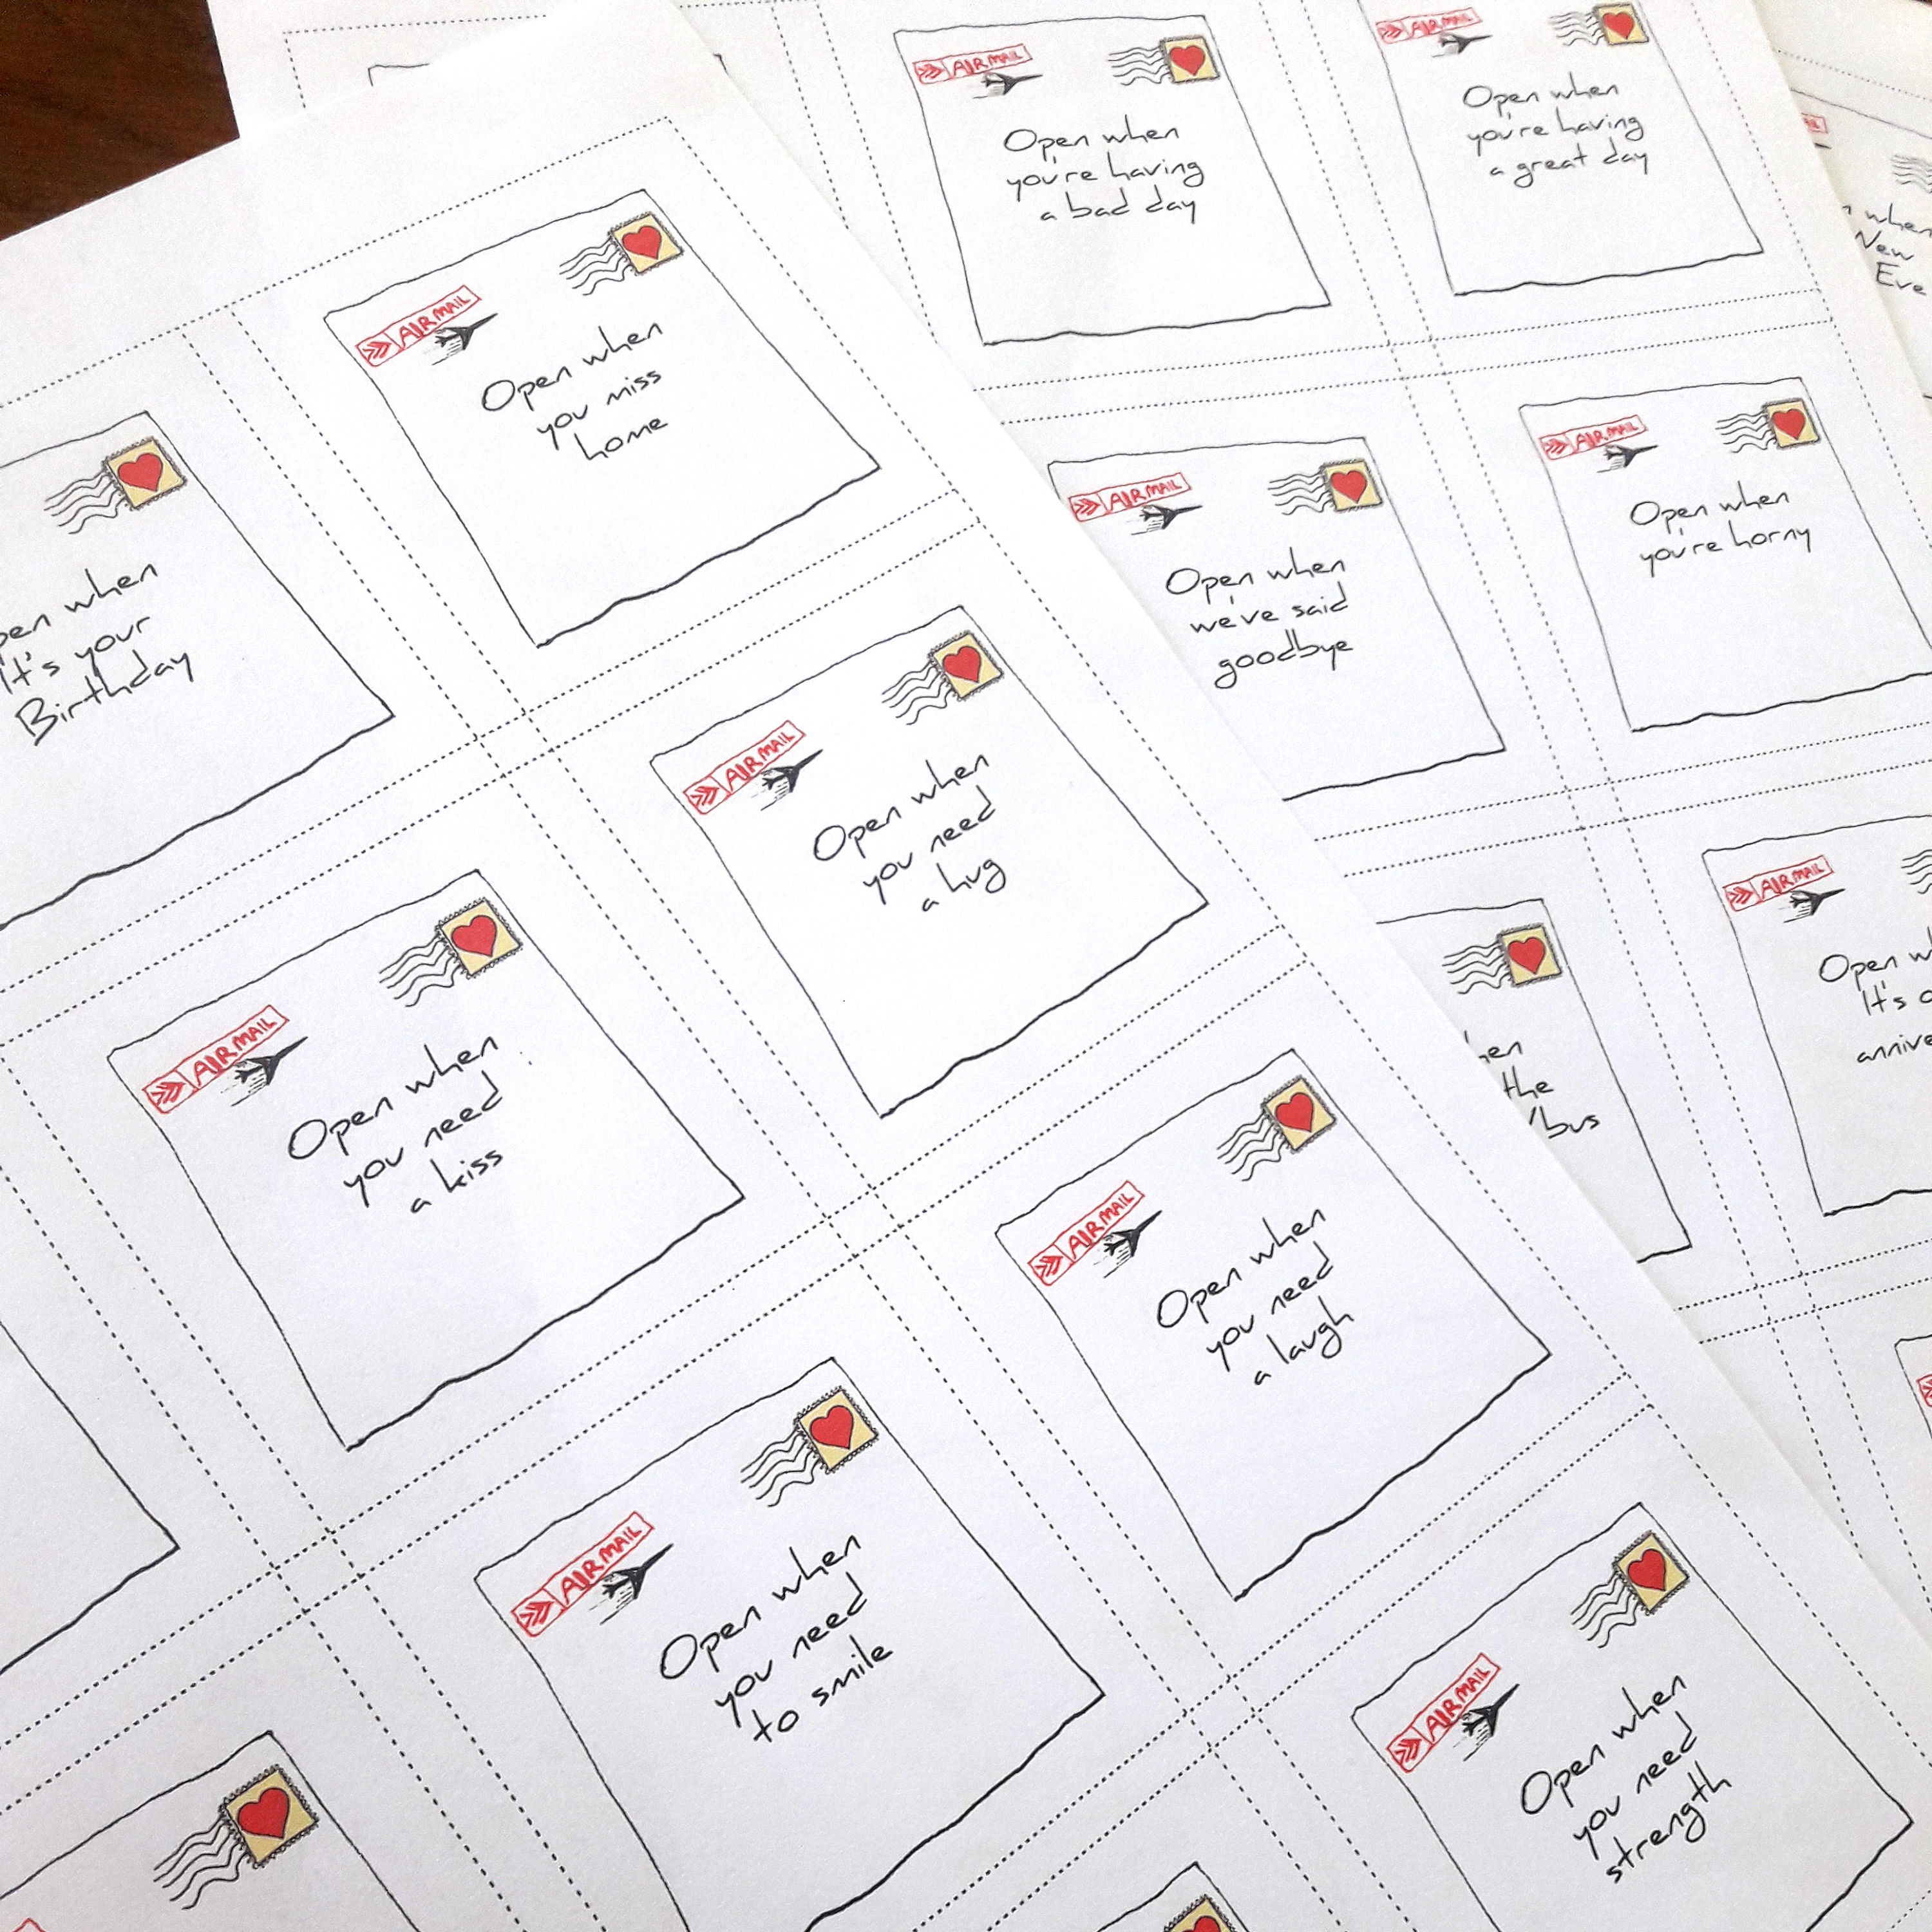 AIR MAIL
Open when
you miss
home
Open when
It's your
Birthday
AIR MAIL
Open when
you need
a hug
AIR MAIL
Open when
you need
a kiss
AIR MAIL
Open when
you need
a laugh
AIR MAIL
Open when
you need
to smile
AIR MAIL
Open when
you need
strength
AIR MAIL
Open when
you're having
a bad day
AIR MAIL
Open when
you're having
a great day
AIR MAIL
Open when
we've said
goodbye
AIR MAIL
Open when
you're horny
the
/bus
AIR MAIL
Open
It's
when
New
Eve